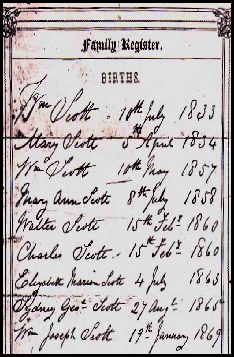 Family Register.
BIRTHS.
Wm Scott . 10th July 1833
Mary Scott 5th April 1834
Wm Scott 10th May 1857
Mary Ann Scott 8th July 1858
Walter Scott 15th Feby 1860
Charles Scott . 15th Feby 1860
Elizabeth Marion Scott 4 July 1863
Sydney Geo. Scott 27 Augt. 1865
Wm Joseph Scott 19th January 1869